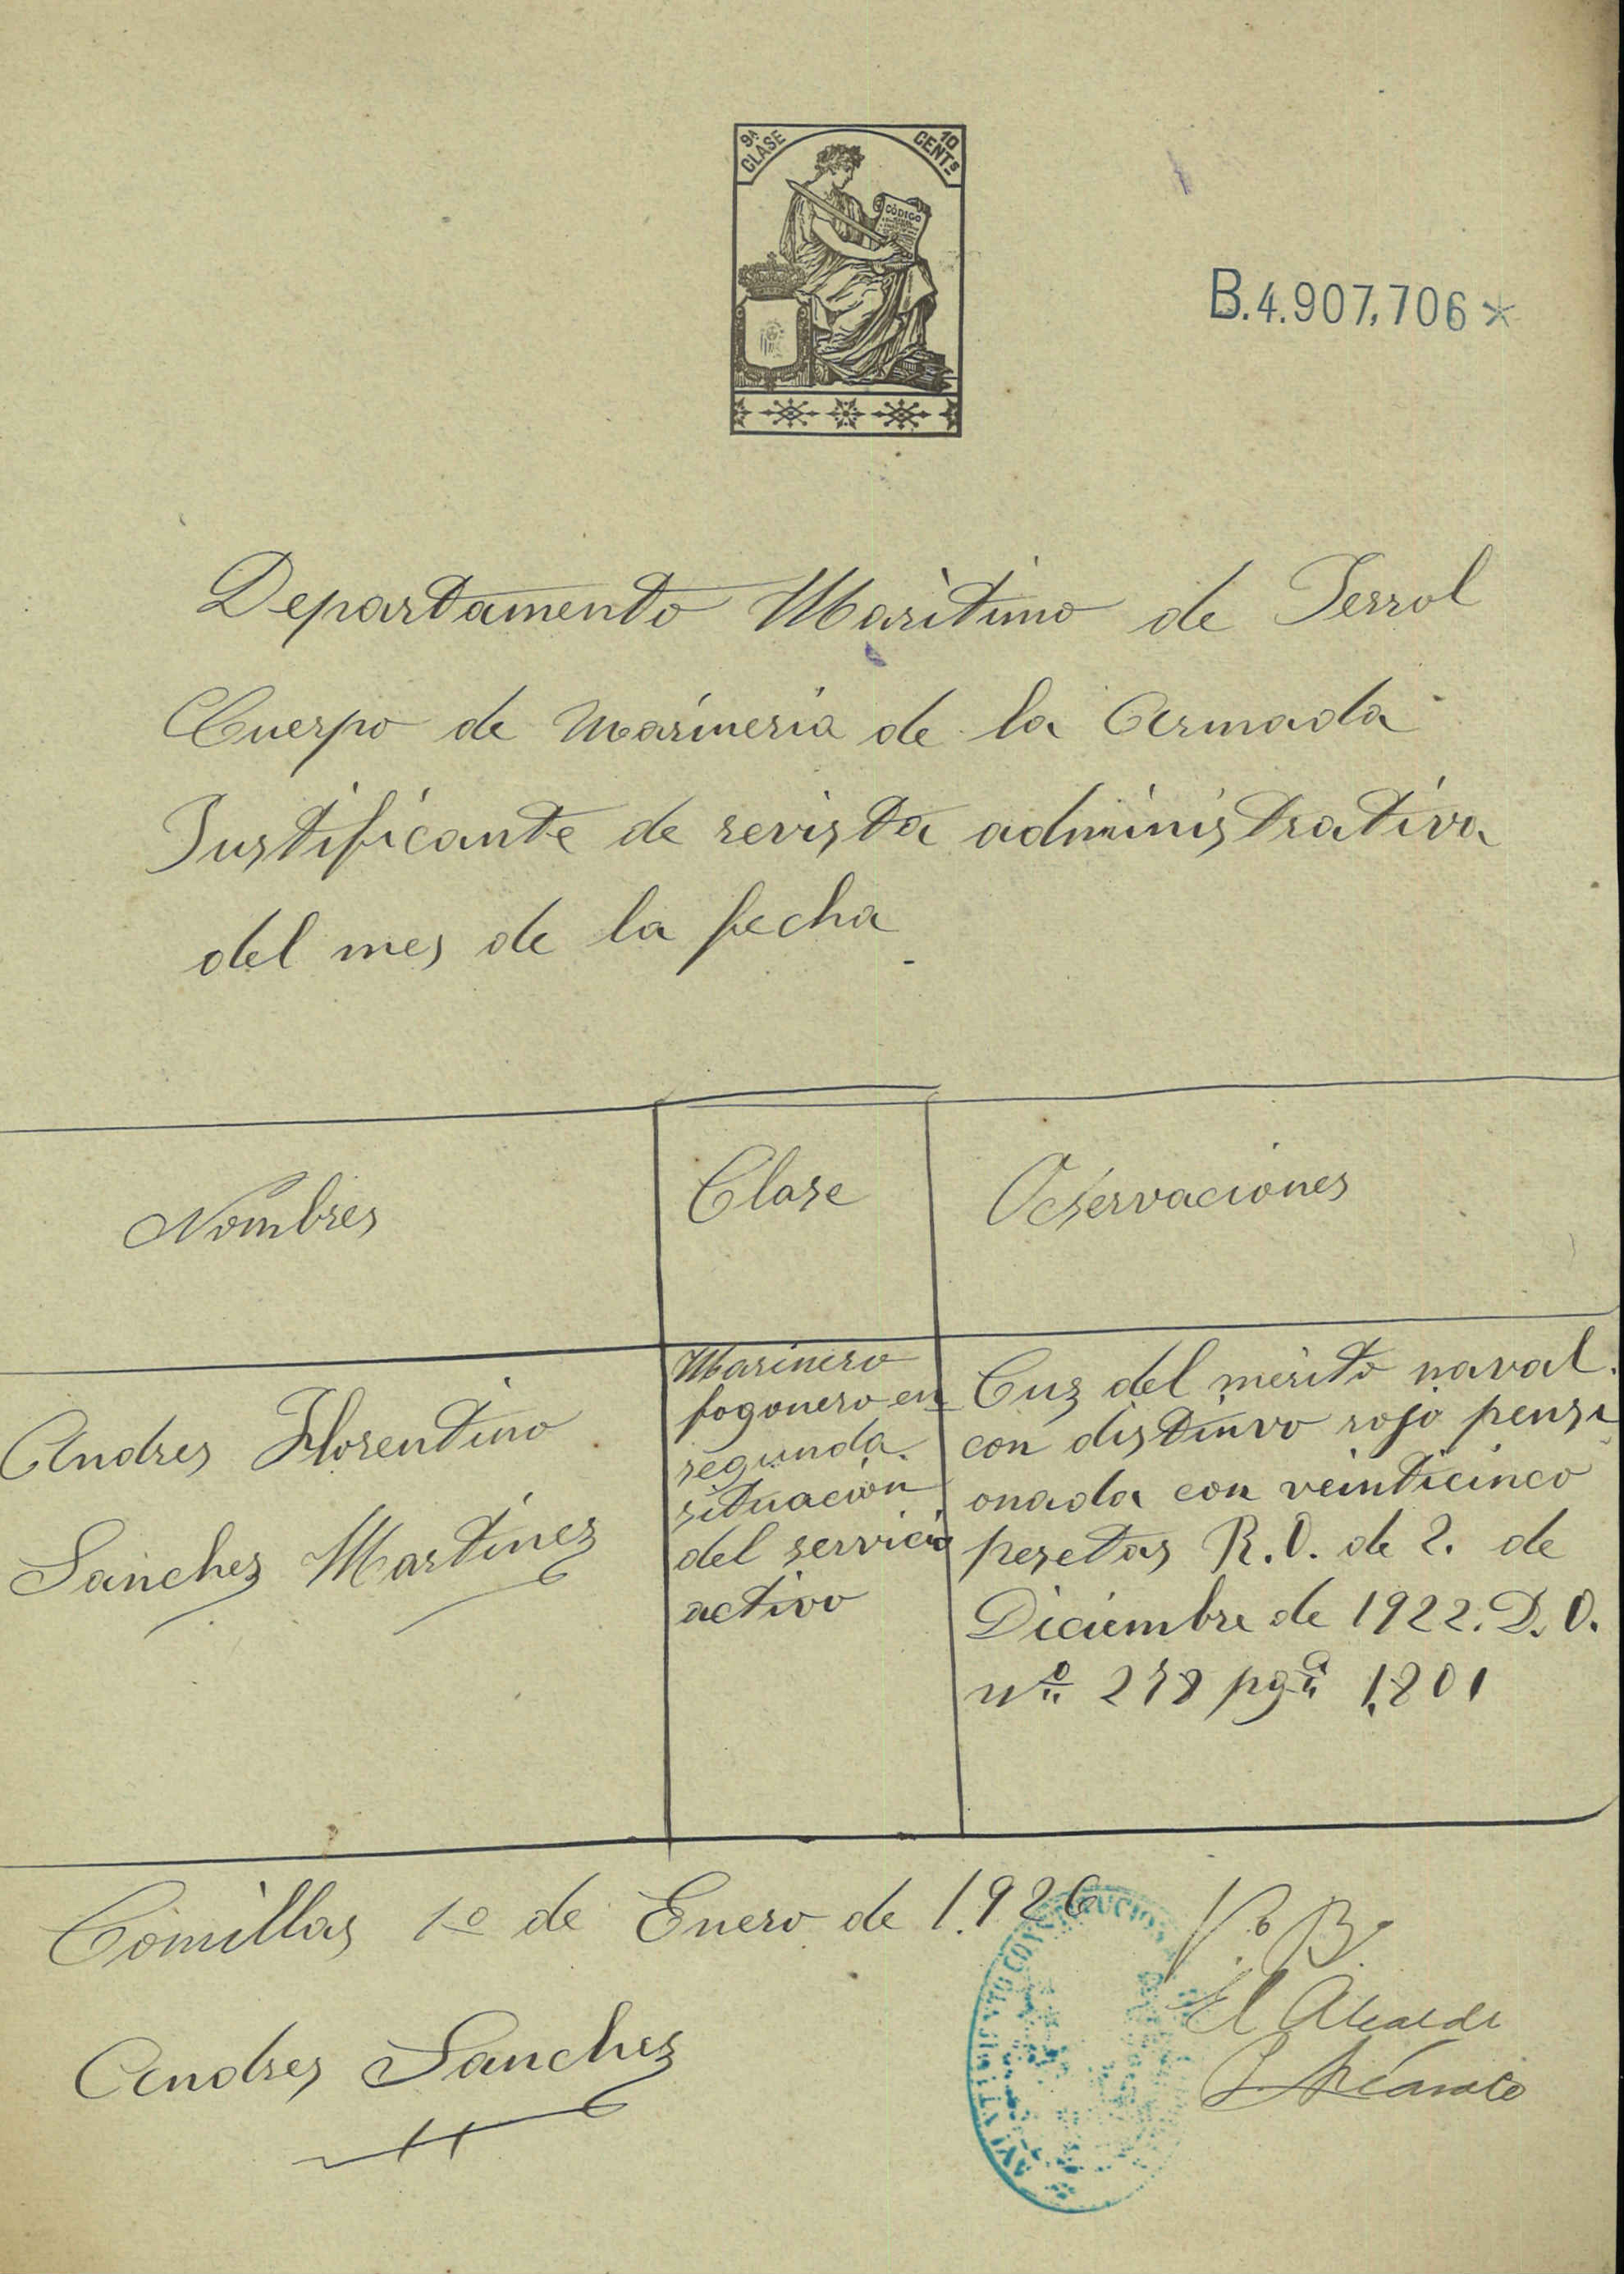 9ª CLASE
10 CENTs
CÓDIGO
B.4.907,706*
Departamento Maritimo de Ferrol
Cuerpo de Marineria de la Armada
Justificante de revista administrativa
del mes de la fecha
Nombres
Clase
Observaciones
Andres Florentino
Sanchez Martinez
Marinero
fogonero en
segunda
situacion
del servicio
activo
Cuz del merito naval
con distinvo rojo pensi
onada con veinticinco
pesetas R.O. de 2. de
Diciembre de 1922. D.O.
nº 278 pgª 1.801
Comillas 1º de Enero de 1.926
Vº Bº
El Alcalde
Andres Sanchez
AYUNTAMIENTO CONSTITUCIONAL